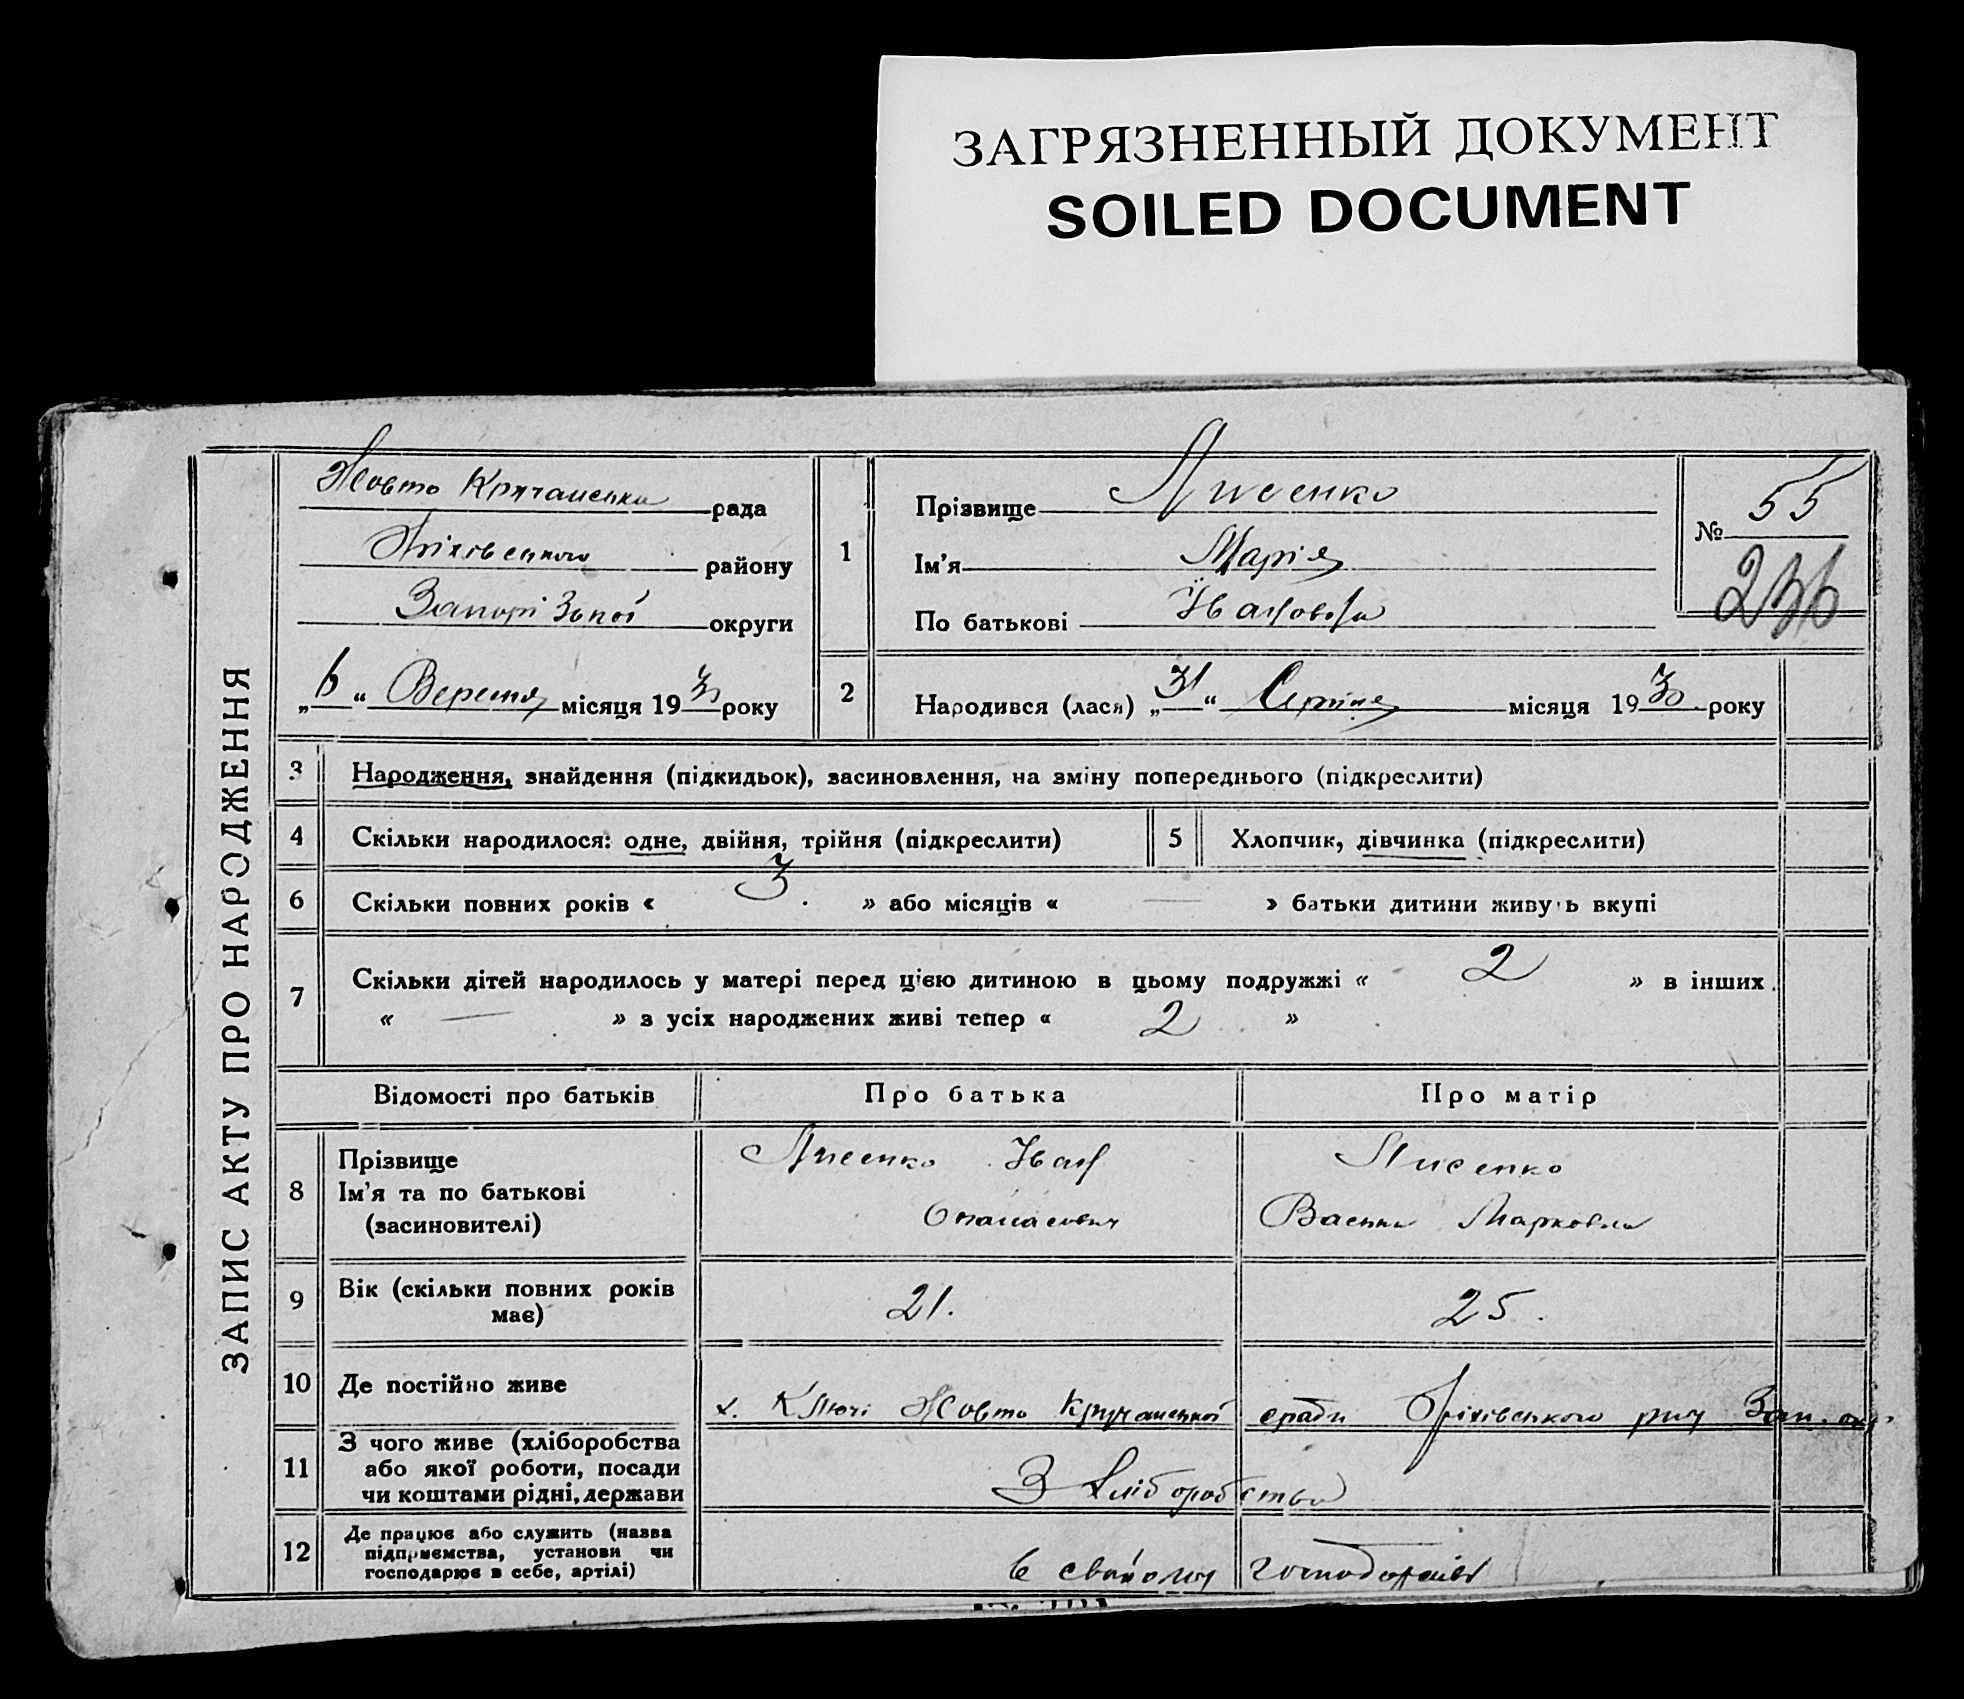 ЗАГРЯЗНЕННЫЙ ДОКУМЕНТ
SOILED DOCUMENT
ЗАПИС АКТУ ПРО НАРОДЖЕННЯ
Жовто Кручанська рада
Оріхівського району
Запорізької округи
„6“ Вересня місяця 1930 року
1
Прізвище Лисенко
Ім'я Марія
По батькові
№ 55
236
2 Народився (лася) „31“ Серпня місяця 1930 року
3 Народження, знайдення (підкидьок), засиновлення, на зміну попереднього (підкреслити)
4 Скільки народилося: одне, двійня, трійня (підкреслити)
5 Хлопчик, дівчинка (підкреслити)
6 Скільки повних років « 3 » або місяців « — » батьки дитини живуть вкупі
7 Скільки дітей народилось у матері перед цією дитиною в цьому подружжі « 2 » в інших
« — » з усіх народжених живі тепер « 2 »
Відомості про батьків Про батька Про матір
8 Прізвище
Ім'я та по батькові
(засиновителі)
Лисенко
Опанасович
Лисенко
Марковна
9 Вік (скільки повних років
має)
21.
25.
10 Де постійно живе
х. Ключі Жовто Кручанської сради Оріхівського рну Зап. окр.
11 З чого живе (хліборобства
або якої роботи, посади
чи коштами рідні, держави
З хліборобства
12 Де працює або служить (назва
підприємства, установи чи
господарює в себе, артілі)
в свойому господарстві